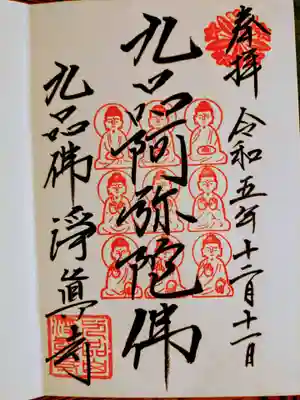 奉拝
令和五年十二月十一日
九品阿弥陀佛
九品佛浄眞寺